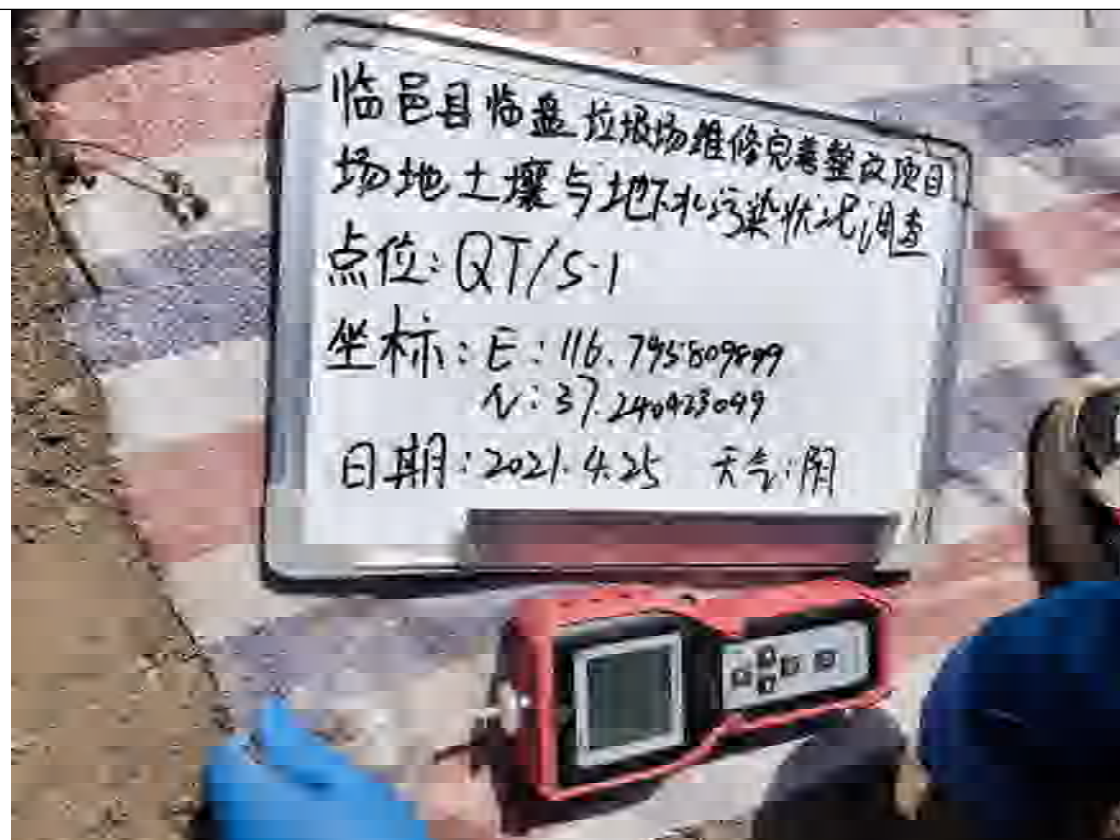 临邑县临盘垃圾场维修完善整改项目
场地土壤与地下水污染状况调查
点位:QT/S-1
坐标:E:116.795809899
N:37.240923099
日期:2021.4.25 天气:阴